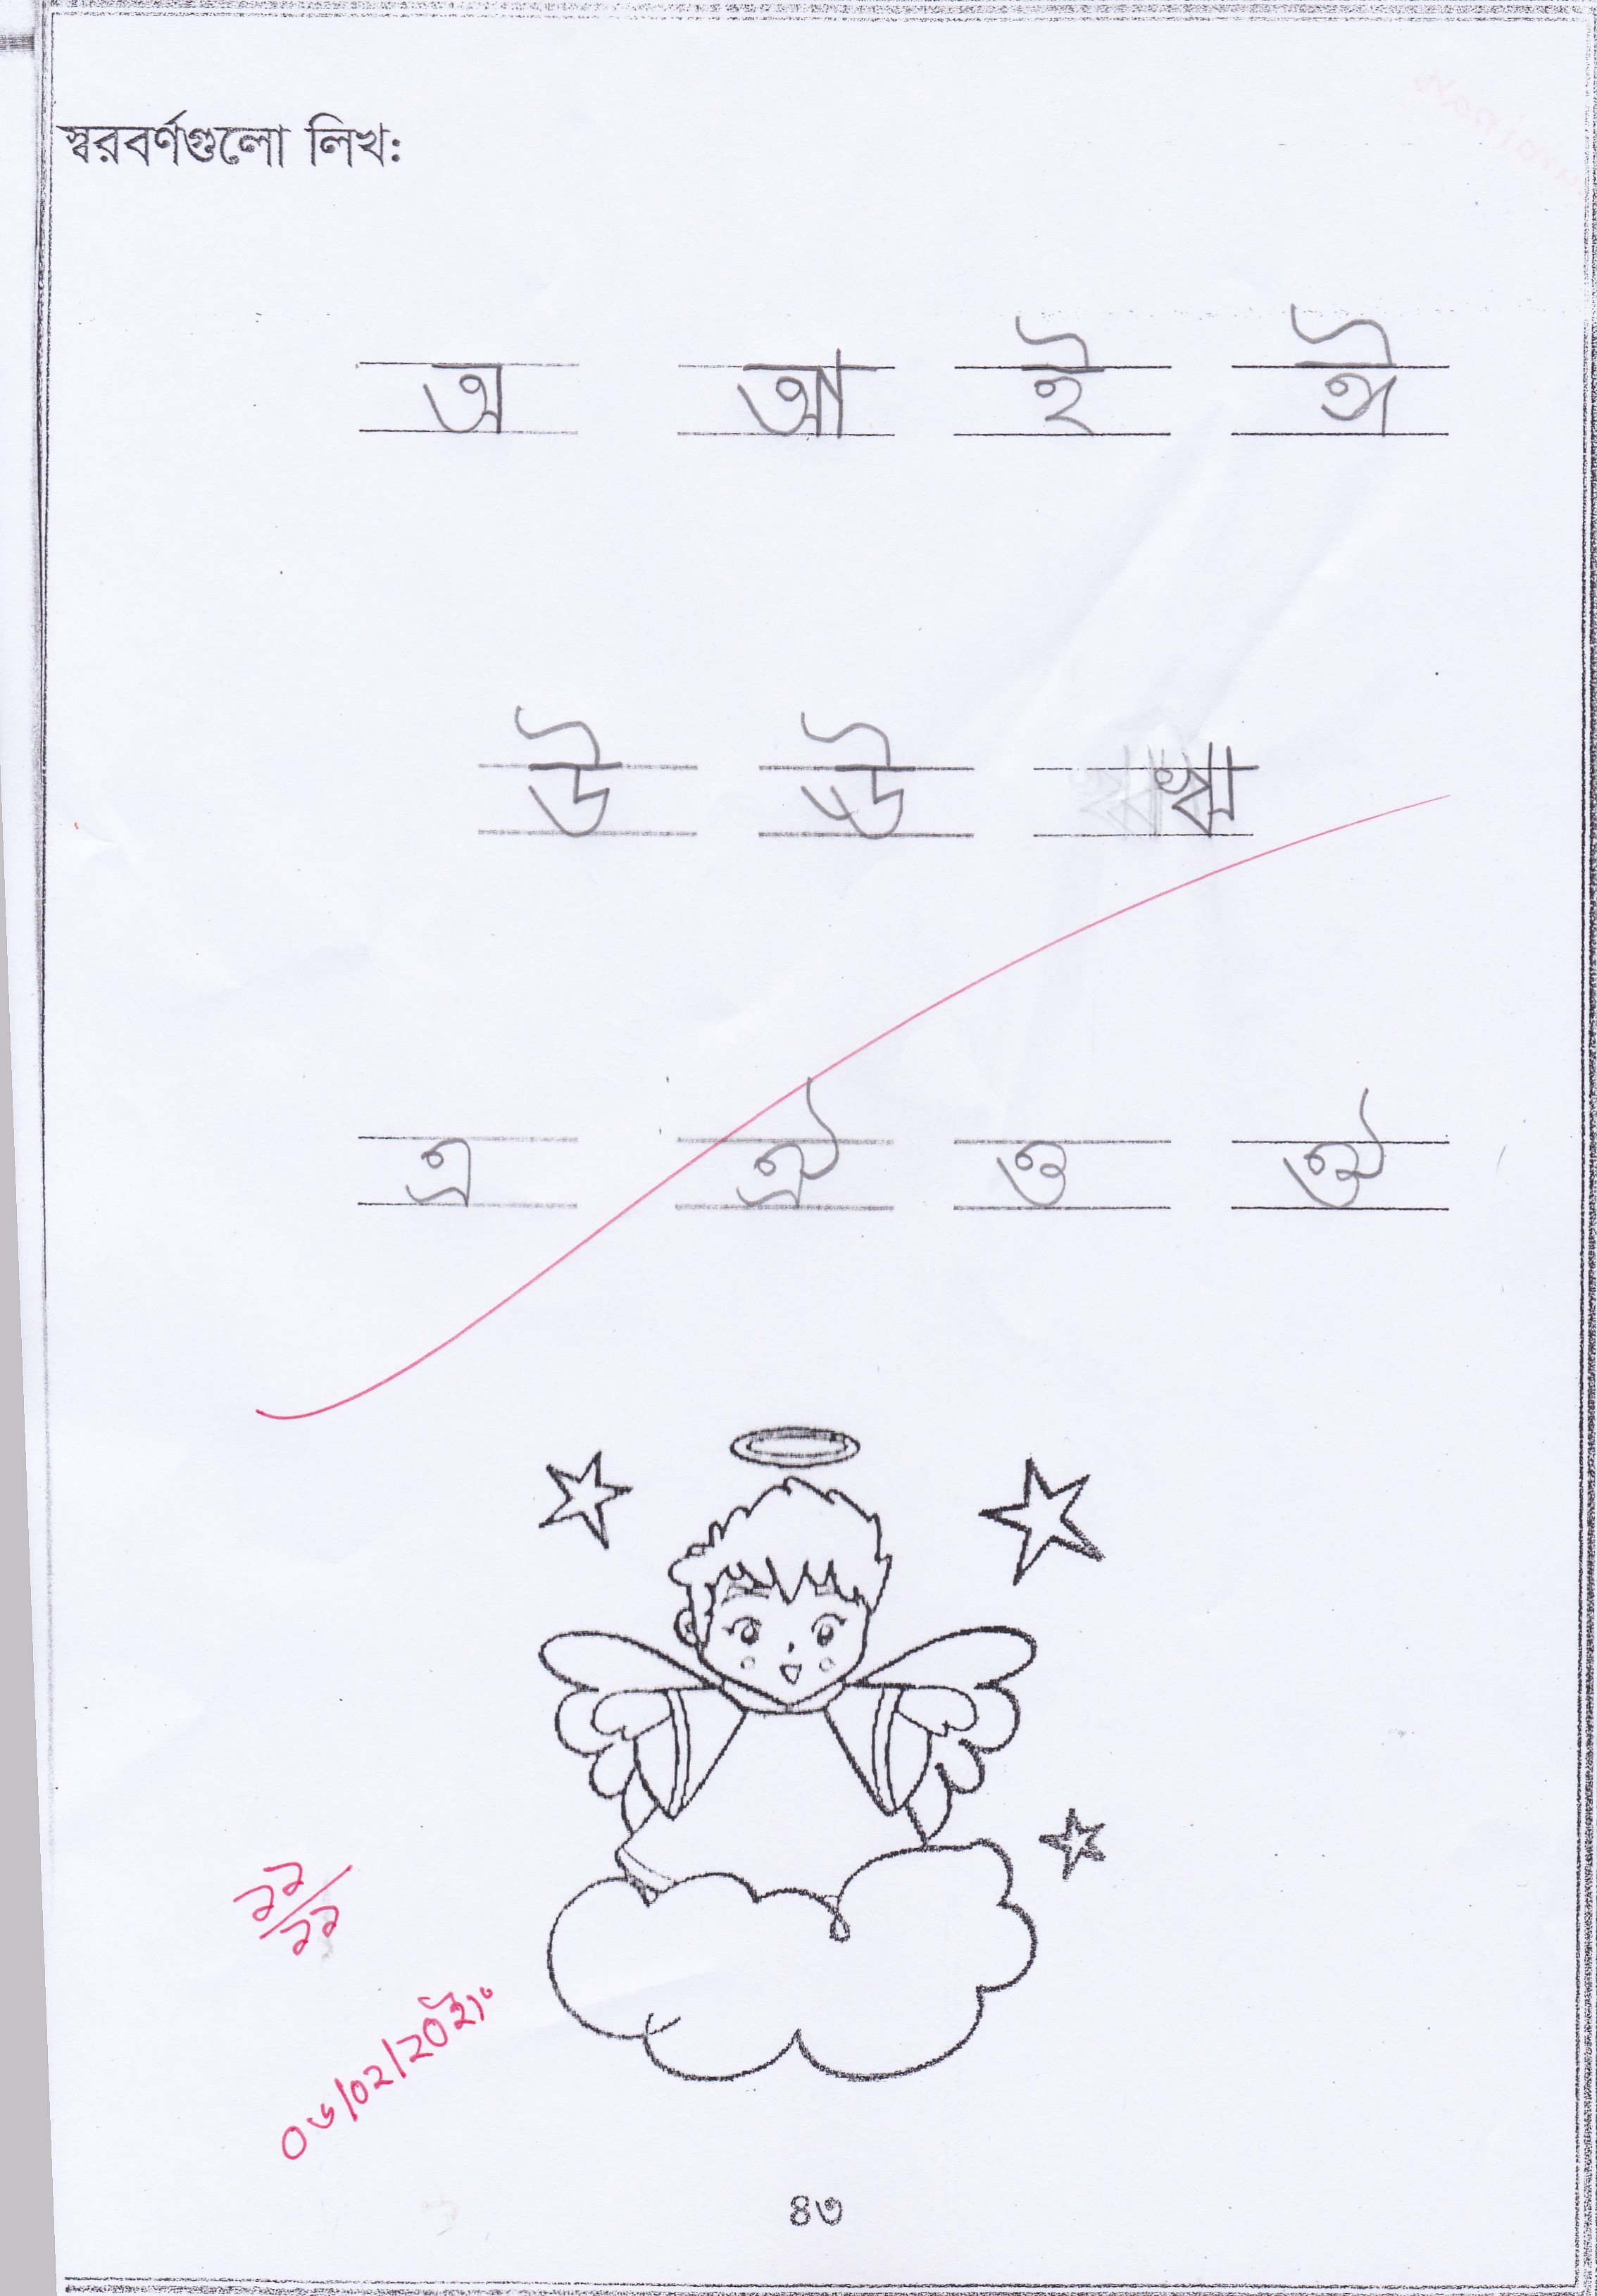 স্বরবর্ণগুলো লিখ:
অ আ ই ঈ
উ ঊ ঋ
এ ঐ ও ঔ
১১/১১
০৬/০২/২০২১
৪৩